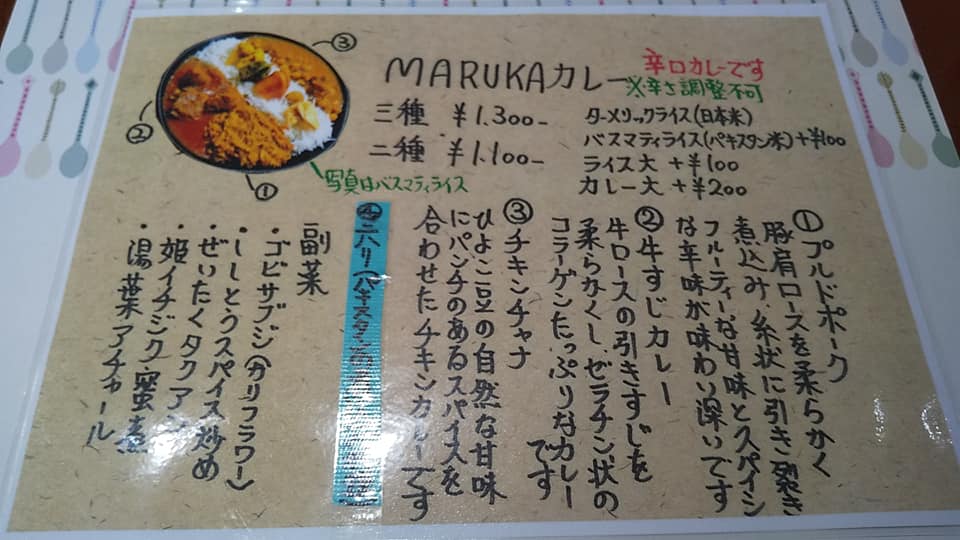 MARUKAカレー
辛口カレーです
※辛さ調整不可
三種 ¥1.300-
二種 ¥1.100-
ターメリックライス(日本米)
バスマティライス(パキスタン米)+¥100
ライス大 +¥100
カレー大 +¥200
③
②
①
写真はバスマティライス
①プルドポーク
豚肩ロースを柔らかく
煮込み、糸状に引き裂き
フルーティーな甘味とスパイシー
な辛味が味わい深いです
②牛すじカレー
牛ロースの引きすじを
柔らかくし、ゼラチン状の
コラーゲンたっぷりなカレー
です
③チキンチャナ
ひよこ豆の自然な甘味
にパンチのあるスパイスを
合わせたチキンカレーです
④ニハリ(パキスタン
副菜
・ゴビサブジ(カリフラワー)
・ししとうスパイス炒め
・ぜいたくタクアン
・姫イチジク蜜煮
・湯葉アチャール